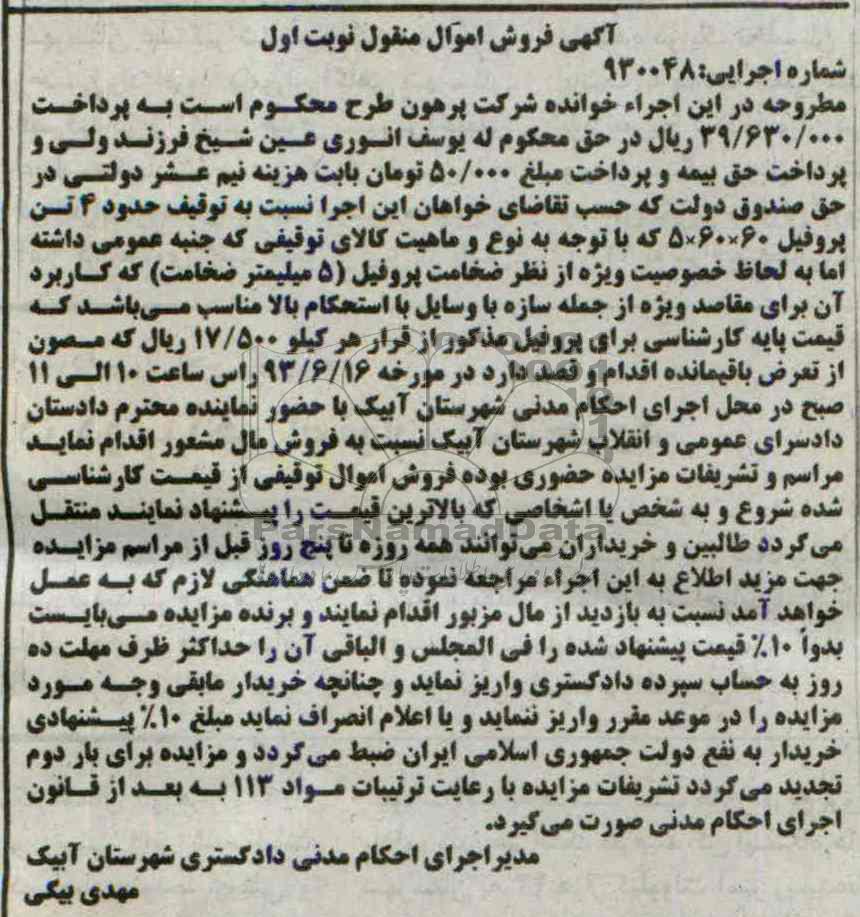 آگهی فروش اموال منقول نوبت اول
شماره اجرایی: ۹۳۰۰۴۸
مطروحه در این اجراء خوانده شرکت پرهون طرح محکوم است به پرداخت
۳۹/۶۳۰/۰۰۰ ریال در حق محکوم له یوسف انوری عین شیخ فرزند ولی و
پرداخت حق بیمه و پرداخت مبلغ ۵۰/۰۰۰ تومان بابت هزینه نیم عشر دولتی در
حق صندوق دولت که حسب تقاضای خواهان این اجرا نسبت به توقیف حدود ۴ تن
پروفیل ۶۰×۶۰×۵ که با توجه به نوع و ماهیت کالای توقیفی که جنبه عمومی داشته
اما به لحاظ خصوصیت ویژه از نظر ضخامت پروفیل (۵ میلیمتر ضخامت) که کاربرد
آن برای مقاصد ویژه از جمله سازه با وسایل با استحکام بالا مناسب می‌باشد که
قیمت پایه کارشناسی برای پروفیل مذکور از قرار هر کیلو ۱۷/۵۰۰ ریال که مصون
از تعرض باقیمانده اقدام و قصد دارد در مورخه ۹۳/۶/۱۶ راس ساعت ۱۰ الی ۱۱
صبح در محل اجرای احکام مدنی شهرستان آبیک با حضور نماینده محترم دادستان
دادسرای عمومی و انقلاب شهرستان آبیک نسبت به فروش مال مشعور اقدام نماید
مراسم و تشریفات مزایده حضوری بوده فروش اموال توقیفی از قیمت کارشناسی
شده شروع و به شخص یا اشخاصی که بالاترین قیمت را پیشنهاد نمایند منتقل
می‌گردد طالبین و خریداران می‌توانند همه روزه تا پنج روز قبل از مراسم مزایده
جهت مزید اطلاع به این اجراء مراجعه نموده تا ضمن هماهنگی لازم که به عمل
خواهد آمد نسبت به بازدید از مال مزبور اقدام نمایند و برنده مزایده می‌بایست
بدواً ۱۰٪ قیمت پیشنهاد شده را فی المجلس و الباقی آن را حداکثر ظرف مهلت ده
روز به حساب سپرده دادگستری واریز نماید و چنانچه خریدار مابقی وجه مورد
مزایده را در موعد مقرر واریز ننماید و یا اعلام انصراف نماید مبلغ ۱۰٪ پیشنهادی
خریدار به نفع دولت جمهوری اسلامی ایران ضبط می‌گردد و مزایده برای بار دوم
تجدید می‌گردد تشریفات مزایده با رعایت ترتیبات مواد ۱۱۳ به بعد از قانون
اجرای احکام مدنی صورت می‌گیرد.
مدیر اجرای احکام مدنی دادگستری شهرستان آبیک
مهدی بیکی
ParsNamadData